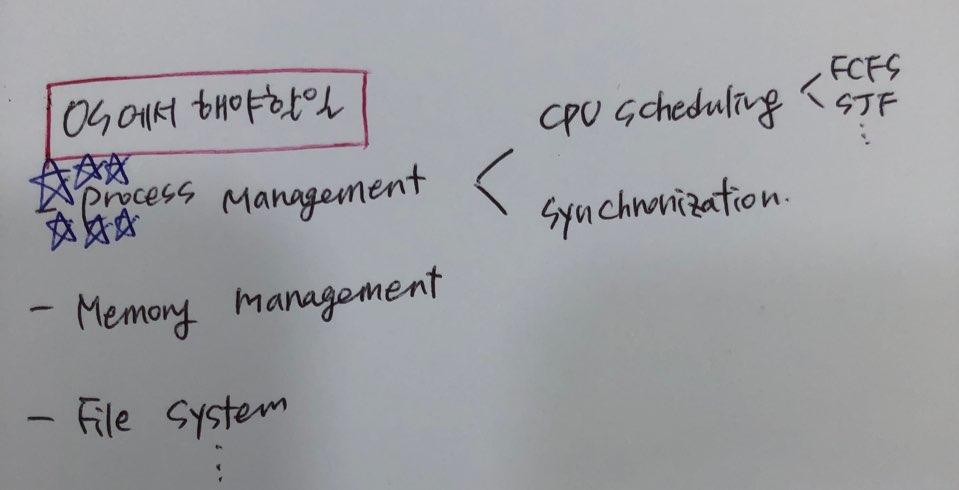 OS에서
Process Management
CPU Scheduling
FCFS
SJF
⋮
Synchronization.
- Memory Management
- File System
⋮